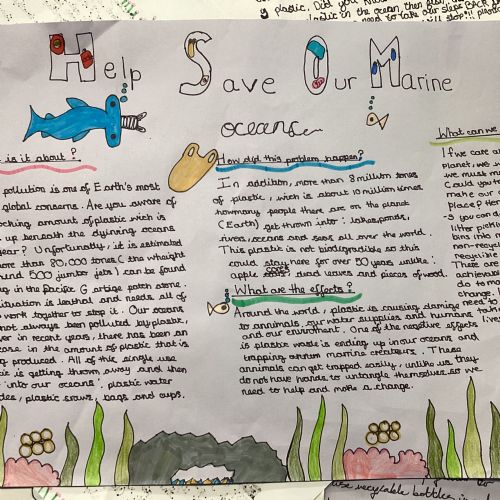 g plastic. Did you
plastic in the ocean, then fish,
need to take our steps BACK
stop!! please
Help Save Our Marine
oceans
is it about?
pollution is one of Earth's most
global concerns. Are you aware of
ocking amount of plastic wich is
up beneath the dyinning oceans
year? Unfortunatly, it is estimated
more than 80,000 tones (the wheight
500 jumbo jets) can be found
ing in the pacific G artige patch alone.
situation is leathal and needs all of
work together to stop it. Our oceans
not always been polluted by plastic,
ver in recent years, there has been an
ease in the amount of plastic that is
produced. All of this single use
ic is getting thrown away and then
into our oceans: plastic water
des, plastic straws, bags and cups.
How did this problem happen?
In addition, more than 8 million tones
of plastic, wich is about 10 million times
howmany people there are on the planet
(Earth) get thrown into: lakes, ponds,
rivers, oceans and seas all over the world.
This plastic is not biodigradible so this
could stay here for over 50 years unlike:
apple cores, dead leaves and pieces of wood.
What are the effects?
Around the world, plastic is causing damage
to animals, our water supplies and humans
and our enviroment. One of the negative effects
is plastic waste is ending up in our oceans and
trapping random marine creatures. These
animals can get trapped easily, unlike us, they
do not have hands to untangle themselves so we
need to help and make a change.
What can we
If we care ar
planet, we
we must m
Could you t
make our
place? Her
-S you can d
litter pickin
bins into
non-recycl
recyclible
These are
achievable
do to ma
change.
need to
take
lives
use recyclable bottles